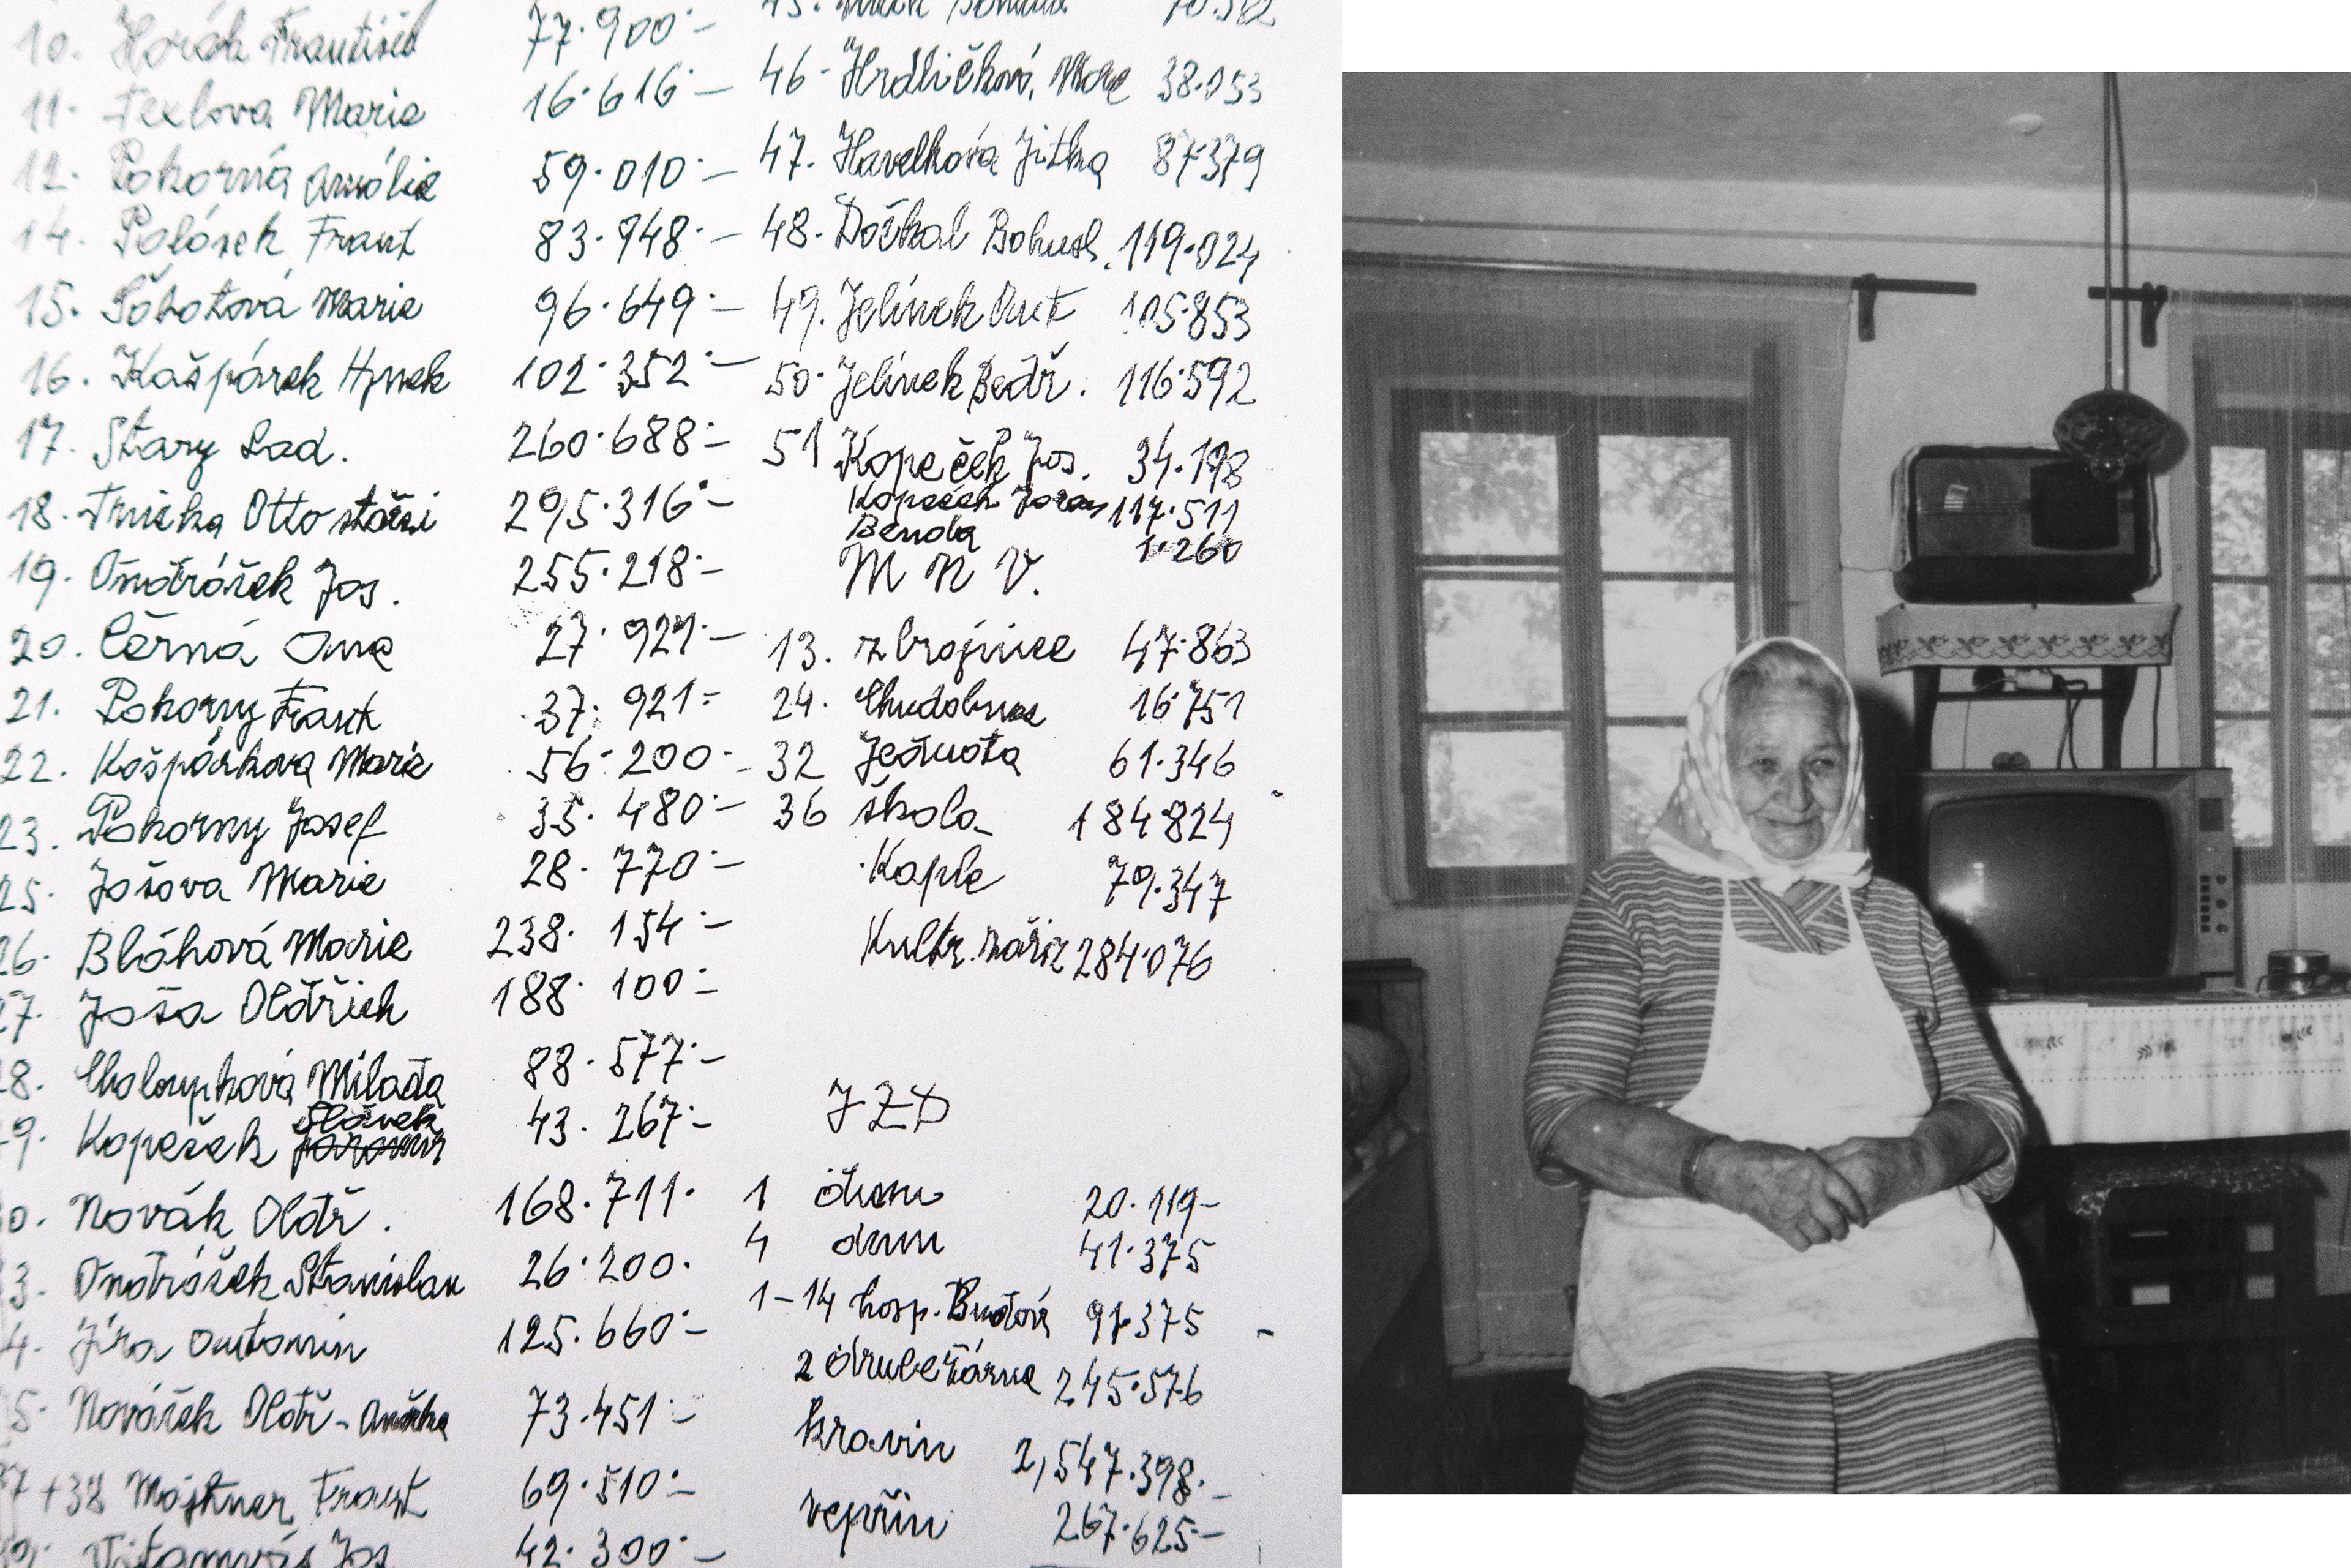 10. Horák František 77.900.-
11. Texlova Marie 16.616.-
12. Pokorná Amálie 59.010.-
14. Polášek Frant 83.948.-
15. Sobotová Marie 96.649.-
16. Kašpárek Hynek 102.352.-
17. Starý Lad. 260.688.-
18. Otto starší 295.316.-
19. Ondrášek Jos. 255.218.-
20. Černá Anna 27.921.-
21. Pokorny Frant 37.921.-
22. Kašpárková Marie 56.200.-
23. Pokorny Josef 35.480.-
25. Jošova Marie 28.770.-
26. Bláhová Marie 238.154.-
27. Joša Oldřich 188.100.-
28. Chaloupková Milada 88.577.-
Slávek
29. Kopeček 43.267.-
0. Novák Oldř. 168.711.
3. Ondrášek Stanislav 26.200.
4. Jíra Antonín 125.660.-
5. Nováček Oldř - Anežka 73.451.-
37+38 Frant 69.510.-
Jos 42.300.-
45. 70.512
46. Hrdličková, Marie 38.053
47. Havelková Jitka 87379
48. Dočkal Bohusl. 119.024
49. Jelínek Ant 105.853
50. Jelínek Bedř. 116.592
51 Kopeček Jos. 34.198
Kopeček Jaros 117.511
Benda 1.260
M N V.
13. zbrojnice 47.863
24. Chudobinec 16.751
32 Jednota 61.346
36 škola 184.824
Kaple 79.347
Kultr. zaříz 284.076
JZD
1 dům 20.119-
4 dům 41.375
1-14 hosp. Budova 91.375
2 drubežárna 245.576
kravín 2,547.398.-
vepřín 267.625.-